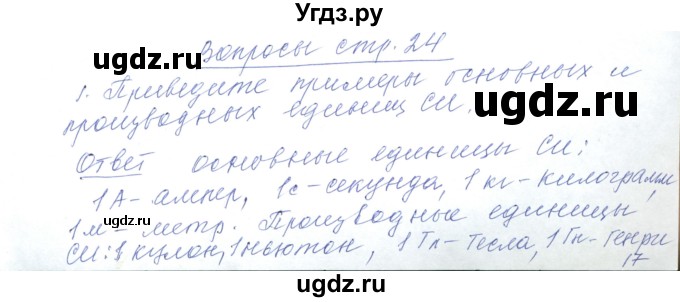 Угдз.ру
Вопросы стр. 24
ugdz.ru
ugdz.ru
1. Приведите примеры основных и
производных единиц СИ.
ugdz.ru
Ответ основные единицы СИ:
1А - ампер, 1с - секунда, 1 кг - килограмм,
ugdz.ru
1 м - метр. Производные единицы
СИ: 1 кулон, 1 ньютон, 1 Тл - Тесла, 1 Гн - Генри
17
ugdz.ru
ugdz.ru